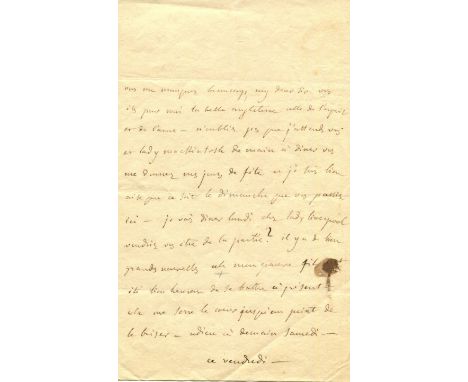 vous me manquez beaucoup my dear sir vous
êtes pour moi la belle angleterre celle de l'esprit
et de l'ame — n'oubliez pas que j'attends vous
et lady mackintosh demain à diner vous
me donnez mes jours de fête et je suis bien
aise que ce soit le dimanche que vous passez
ici — je vais diner lundi chez lady liverpool
voudriez vous être de la partie? il y a de bien
grandes nouvelles mon pauvre fils
été bien heureux de se battre à présent
cela me serre le coeur jusqu'au point de
le briser — adieu à demain samedi —
ce vendredi —